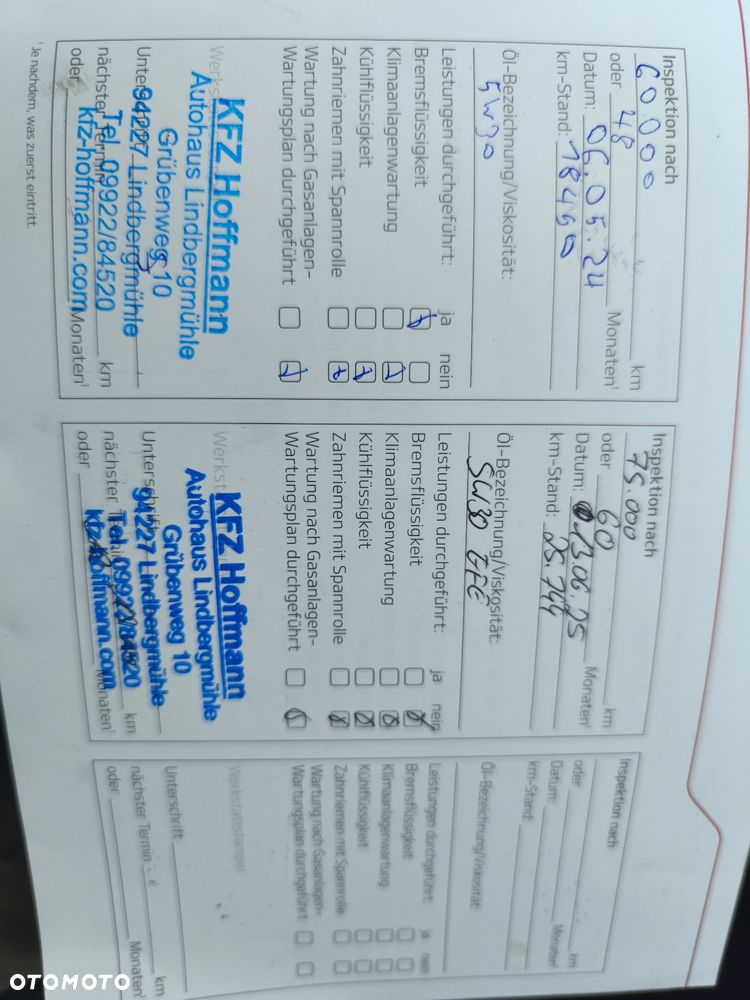 Inspektion nach
60000 km
oder 48 Monaten¹
Datum: 06.05.24
km-Stand: 18400
Öl-Bezeichnung/Viskosität:
5W30
Leistungen durchgeführt: ja nein
Bremsflüssigkeit
Klimaanlagenwartung
Kühlflüssigkeit
Zahnriemen mit Spannrolle
Wartung nach Gasanlagen-
Wartungsplan durchgeführt
KFZ Hoffmann
Autohaus Lindbergmühle
Grübenweg 10
94227 Lindbergmühle
Tel. 09922/84520
kfz-hoffmann.com
nächster Termin km
oder Monaten¹
¹ Je nachdem, was zuerst eintritt.
Inspektion nach
75.000 km
oder 60 Monaten¹
Datum: 13.06.25
km-Stand: 25.744
Öl-Bezeichnung/Viskosität:
5W30
Leistungen durchgeführt: ja nein
Bremsflüssigkeit
Klimaanlagenwartung
Kühlflüssigkeit
Zahnriemen mit Spannrolle
Wartung nach Gasanlagen-
Wartungsplan durchgeführt
KFZ Hoffmann
Autohaus Lindbergmühle
Grübenweg 10
94227 Lindbergmühle
Tel. 09922/84520
kfz-hoffmann.com
Unterschrift
nächster km
oder Monaten¹
Inspektion nach
km
oder Monaten¹
Datum:
km-Stand:
Öl-Bezeichnung/Viskosität:
Leistungen durchgeführt: ja nein
Bremsflüssigkeit
Klimaanlagenwartung
Kühlflüssigkeit
Zahnriemen mit Spannrolle
Wartung nach Gasanlagen-
Wartungsplan durchgeführt
Werkstattstempel
Unterschrift
nächster Termin km
oder Monaten¹
OTOMOTO